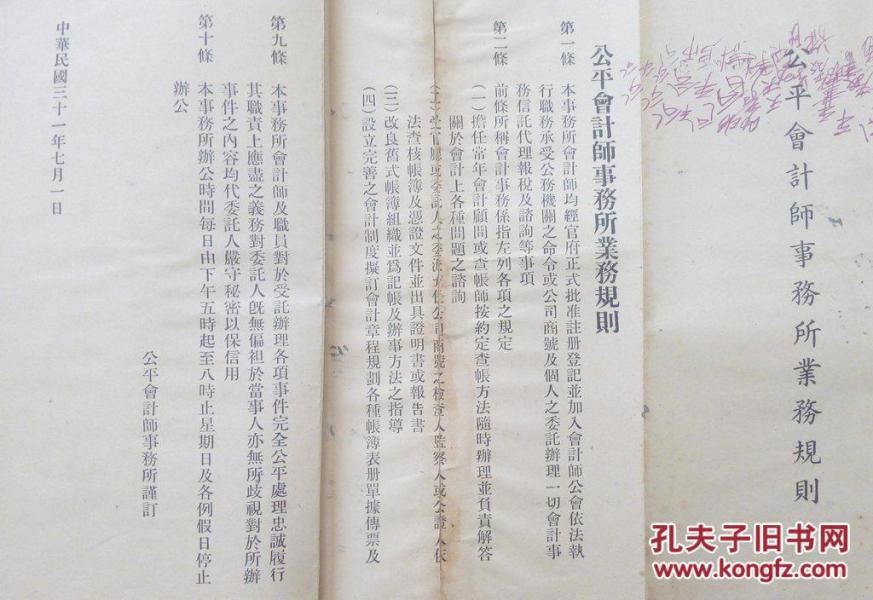 公平會計師事務所業務規則
公平會計師事務所業務規則
第一條　本事務所會計師均經官府正式批准註册登記並加入會計師公會依法執
行職務承受公務機關之命令或公司商號及個人之委託辦理一切會計事
務信託代理報稅及諮詢等事項
第二條　前條所稱會計事務係指左列各項之規定
（一）擔任常年會計顧問或查帳師按約定查帳方法隨時辦理並負責解答
關於會計上各種問題之諮詢
（二）受官廳或委託人之委派充任公司商號之檢查人監察人或公證人依
法查核帳簿及憑證文件並出具證明書或報告書
（三）改良舊式帳簿組織並爲記帳及辦事方法之指導
（四）設立完善之會計制度擬訂會計章程規劃各種帳簿表册單據傳票及
第九條　本事務所會計師及職員對於受託辦理各項事件完全公平處理忠誠履行
其職責上應盡之義務對委託人旣無偏袒於當事人亦無所歧視對於所辦
事件之內容均代委託人嚴守秘密以保信用
第十條　本事務所辦公時間每日由下午五時起至八時止星期日及各例假日停止
辦公
公平會計師事務所謹訂
中華民國三十一年七月一日
孔夫子旧书网
www.kongfz.com